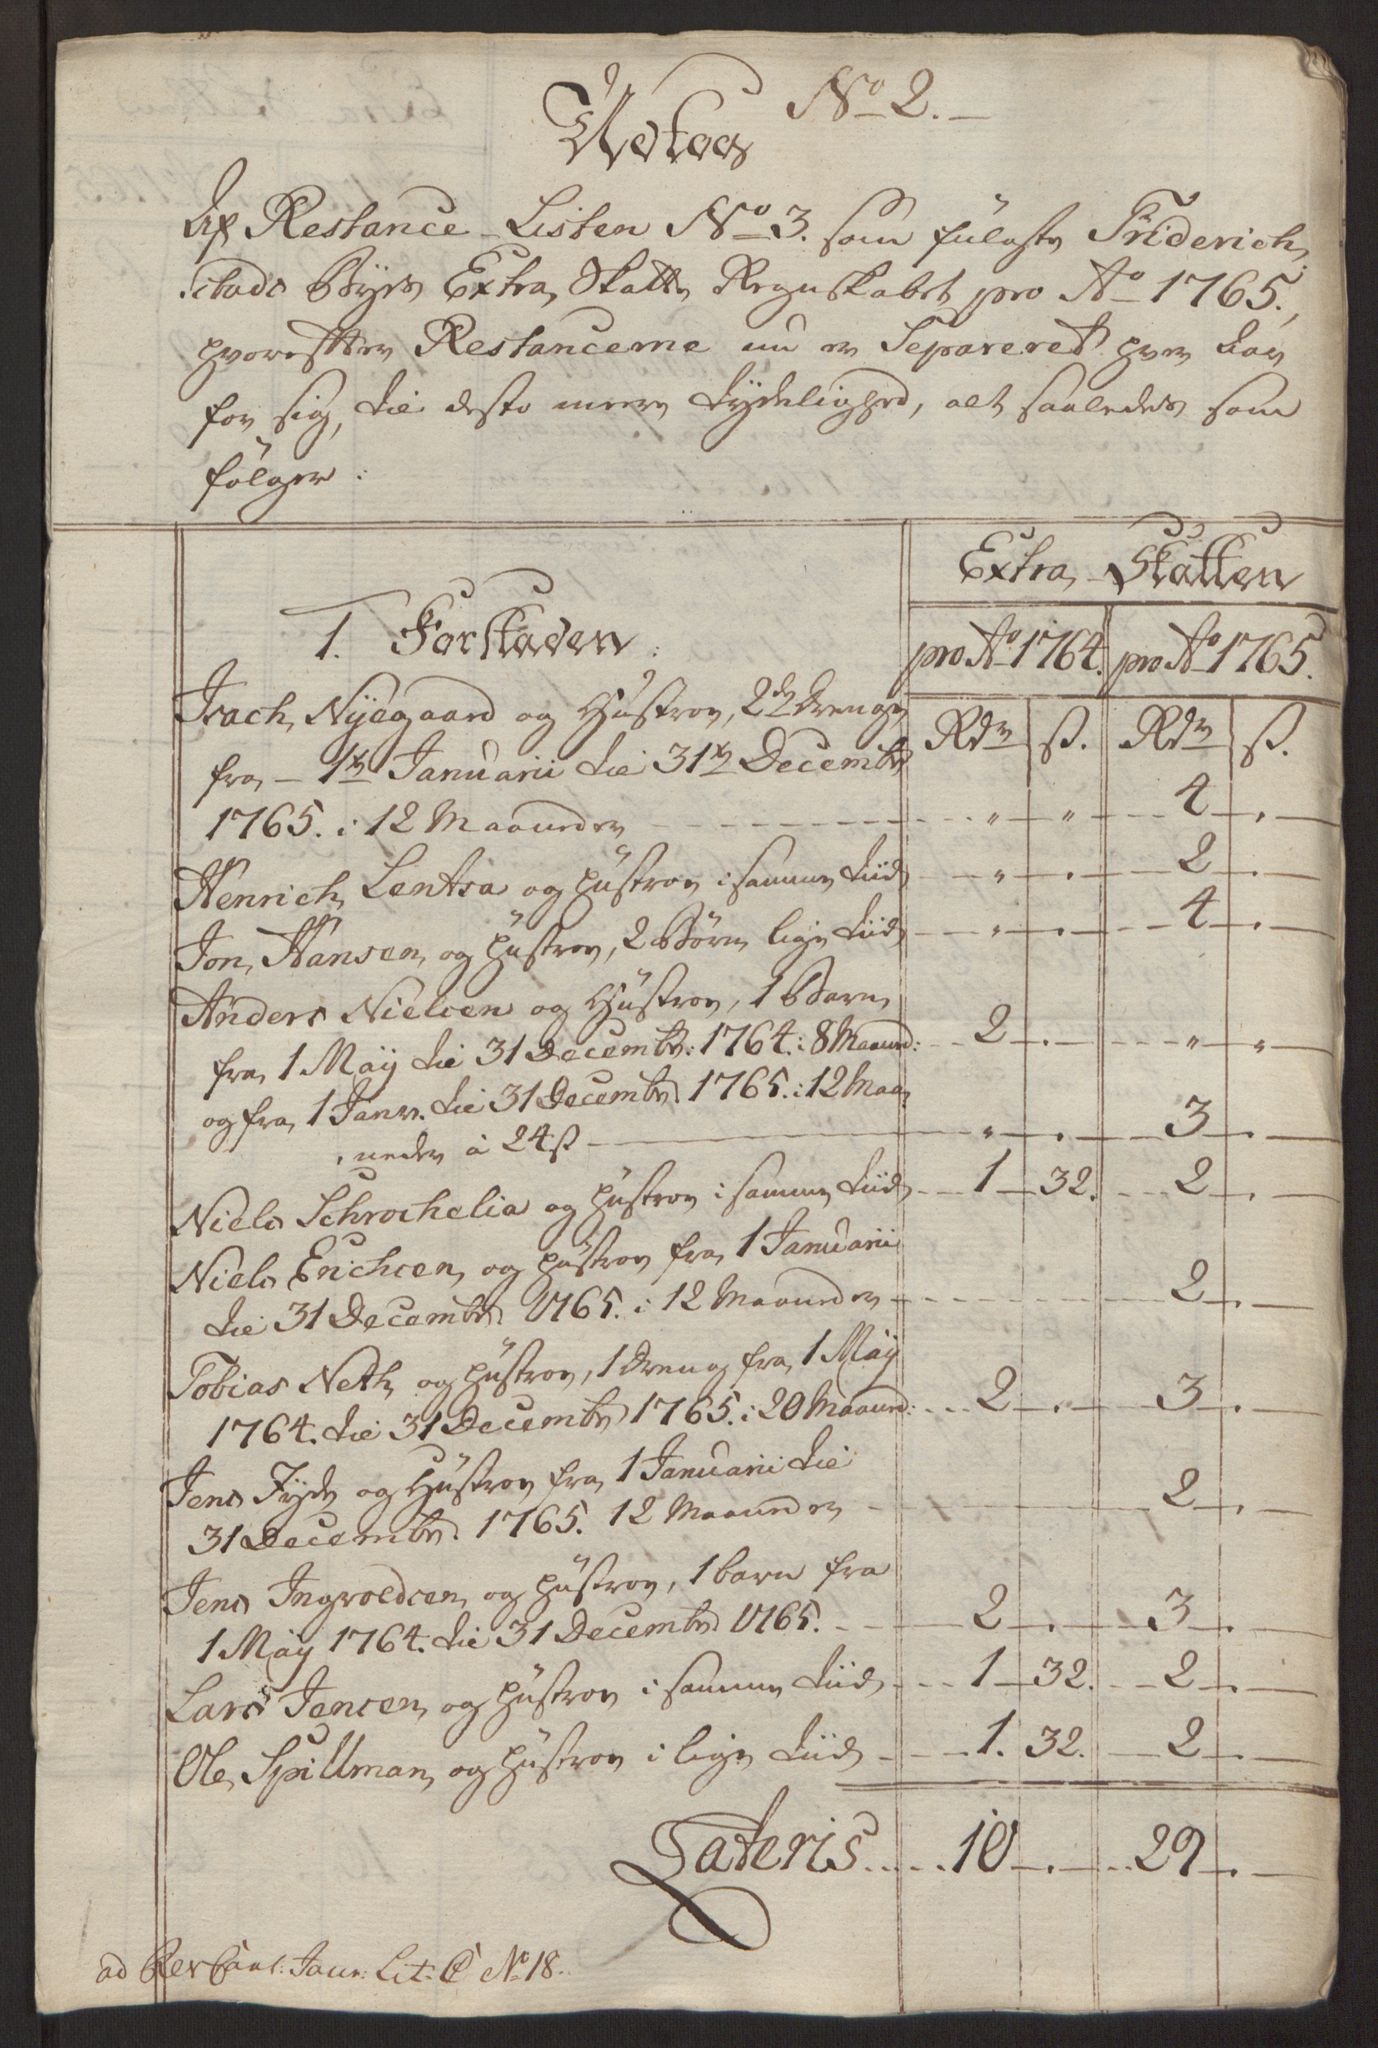 No 2.
Extract
Af Restance-Listen No 3. som fulgte Friderich-
stads Byes Extra Skatte Regnskabet pro Ao 1765.,
hvorefter Restancerne nu er Separeret hver Aar
for sig, til desto meere tydelighed, alt saaledes som
følger:
Extra Skatten
1. Forstaden.
pro Ao 1764. pro Ao 1765.
Rdr ß. Rdr ß.
Isach Nyegaard og Hustrue, 2de Drenge
fra 1te Januarii til 31te Decembr
1765. i 12 Maaneder " " 4 .
Henrich Lentsa og hustrue i samme tiid " . 2 .
Jon Hansen og hustrue, 2 Børn lige tiid " . 4 .
Anders Nielsen og Hustrue, 1 Barn
fra 1 Maÿ til 31 Decembr: 1764. i 8 Maaned: 2 . " "
og fra 1 Janv. til 31 Decembr 1765. i 12 Maa-
neder à 24 ß " . 3 .
Niels Schrochelia og hustrue i samme tiid 1 32. 2 .
Niels Erichsen og hustrue fra 1 Januarii
til 31 Decembr 1765. i 12 Maaneder 2 .
Tobias Neth og hustrue, 1 dreng fra 1 Maÿ
1764. til 31 Decembr 1765. i 20 Maaned: 2 . 3 .
Jens Fyhn og Hustrue fra 1 Januarii til
31 Decembr. 1765. 12 Maaneder 2 .
Jens Ingvoldsen og hustrue, 1 barn fra
1 Maÿ 1764. til 31 Decembr 1765. 2 . 3 .
Lars Jensen og hustrue i samme tiid 1 32. 2 .
Ole Spillman og hustrue i lige tiid 1. 32. 2 .
Lateris 10 . 29 .
ad Lit: C No 18.